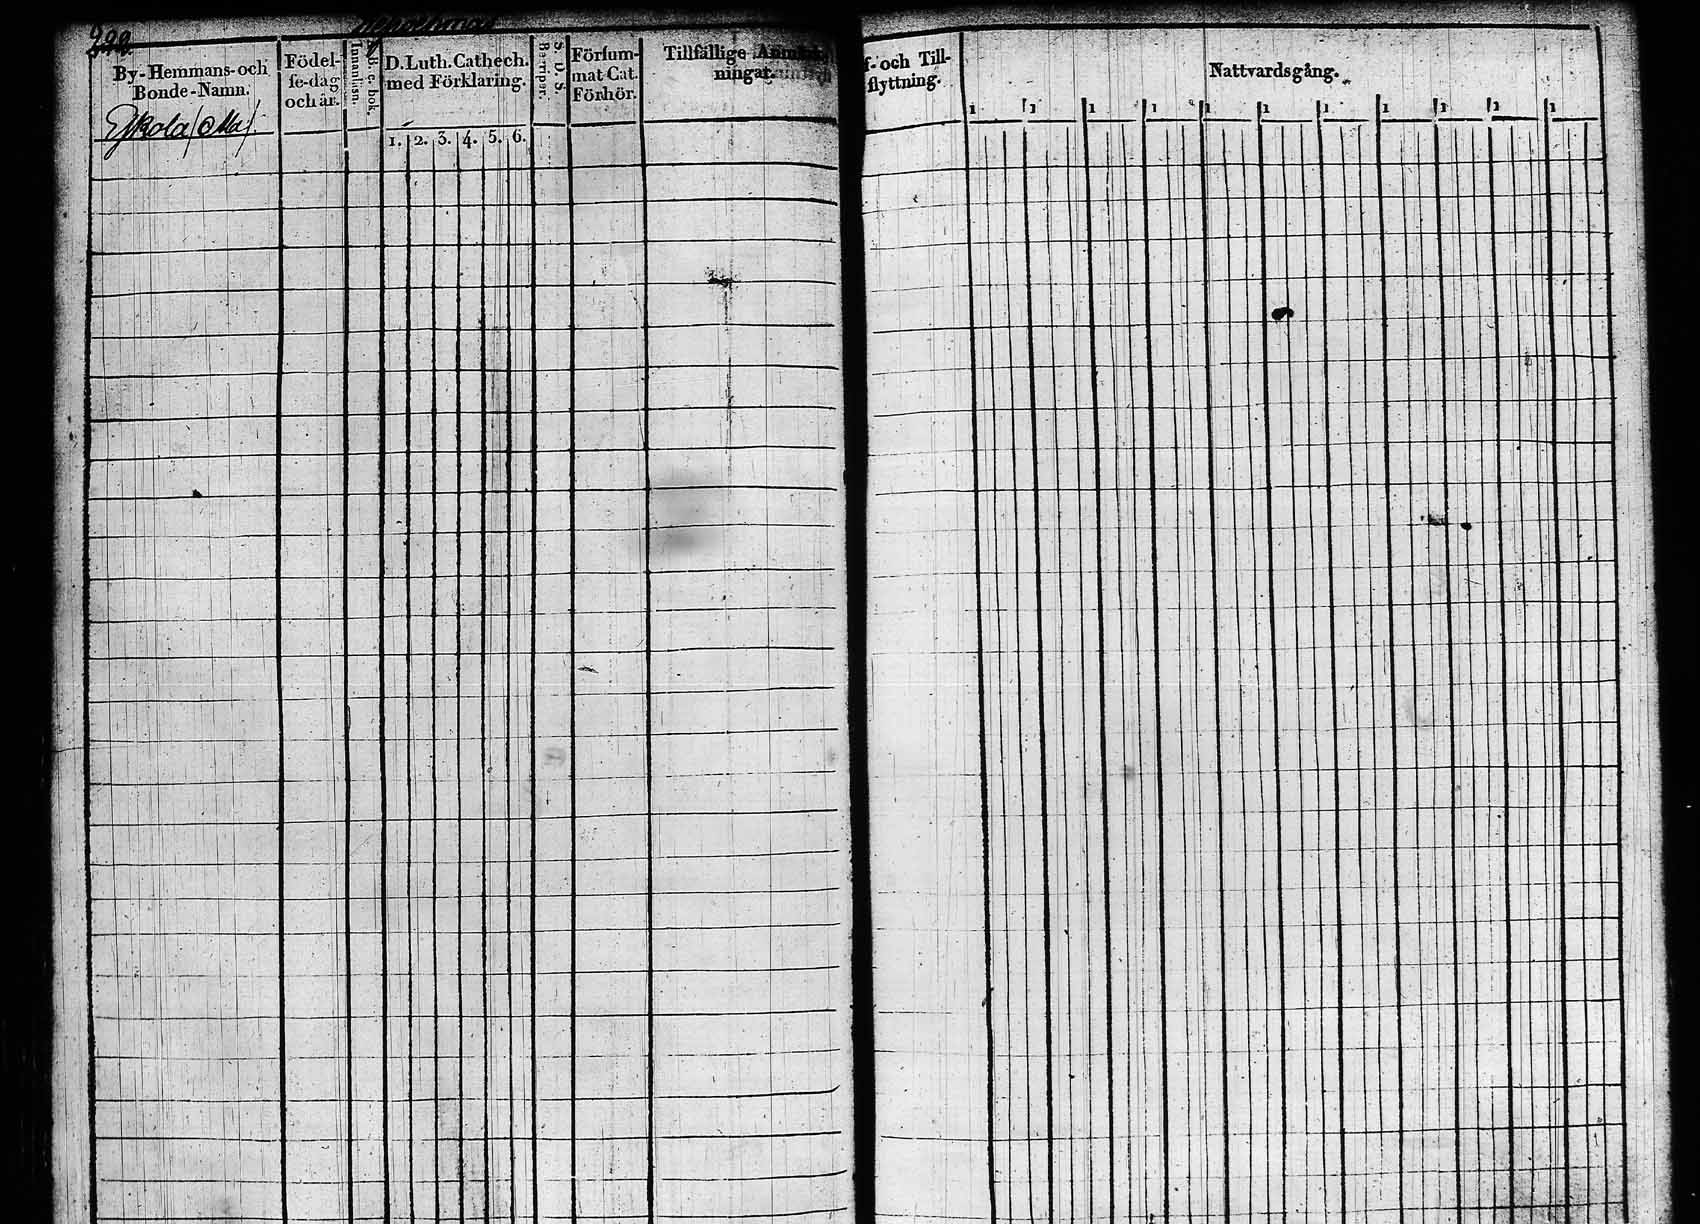 222.
By-Hemmans-och Bonde-Namn.
Eskola
Födel-
se-dag
och år.
Innanläsn.
A. B. c. bok.
D. Luth. Cathech.
med Förklaring.
1. 2. 3. 4. 5. 6.
S. D. S.
Begriper.
Försum-
mat Cat.
Förhör.
Tillfällige Anmärk-
ningar.
f- och Till-
flyttning.
Nattvardsgång.
1 1 1 1 1 1 1 1 1 1 1